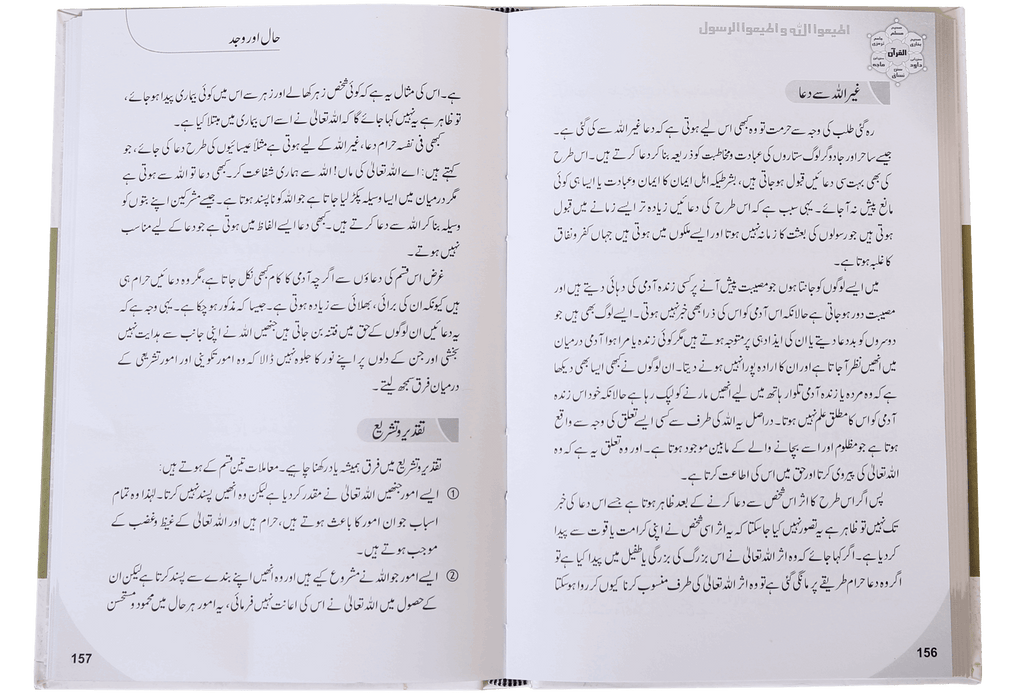 اطیعوا اللہ و اطیعوا الرسول
القرآن
صحیح مسلم
صحیح بخاری
جامع ترمذی
سنن ابی داود
سنن ابن ماجہ
سنن نسائی
غیر اللہ سے دعا
رہ گئی طلب کی وجہ سے حرمت تو وہ بھی اس لیے ہوتی ہے کہ دعا غیر اللہ سے کی گئی ہے۔
جیسے ساحر اور جادوگر لوگ ستاروں کی عبادت و مخاطبت کو ذریعہ بنا کر دعا کرتے ہیں۔ اس طرح
کی بھی بہت سی دعائیں قبول ہو جاتی ہیں، بشرطیکہ اہل ایمان کا ایمان و عبادت یا ایسا ہی کوئی
مانع پیش نہ آ جائے۔ یہی سبب ہے کہ اس طرح کی دعائیں زیادہ تر ایسے زمانے میں قبول
ہوتی ہیں جو رسولوں کی بعثت کا زمانہ نہیں ہوتا اور ایسے ملکوں میں ہوتی ہیں جہاں کفر و نفاق
کا غلبہ ہوتا ہے۔
میں ایسے لوگوں کو جانتا ہوں جو مصیبت پیش آنے پر کسی زندہ آدمی کی دہائی دیتے ہیں اور
مصیبت دور ہو جاتی ہے حالانکہ اس آدمی کو اس کی ذرا بھی خبر نہیں ہوتی۔ ایسے لوگ بھی ہیں جو
دوسروں کو بددعا دیتے یا ان کی ایذا دہی پر متوجہ ہوتے ہیں مگر کوئی زندہ یا مرا ہوا آدمی درمیان
میں انھیں نظر آ جاتا ہے اور ان کا ارادہ پورا نہیں ہونے دیتا۔ ان لوگوں نے بھی ایسا بھی دیکھا
ہے کہ وہ مردہ یا زندہ آدمی تلوار ہاتھ میں لیے انھیں مارنے کو لپک رہا ہے حالانکہ خود اس زندہ
آدمی کو اس کا مطلق علم نہیں ہوتا۔ دراصل یہ اللہ کی طرف سے کسی ایسے تعلق کی وجہ سے واقع
ہوتا ہے جو مظلوم اور اسے بچانے والے کے مابین موجود ہوتا ہے۔ اور وہ تعلق یہ ہے کہ وہ
اللہ تعالیٰ کی پیروی کرتا اور حق میں اس کی اطاعت کرتا ہے۔
پس اگر اس طرح کا اثر اس شخص سے دعا کرنے کے بعد ظاہر ہوتا ہے جسے اس دعا کی خبر
تک نہیں تو ظاہر ہے یہ تصور نہیں کیا جا سکتا کہ یہ اثر اسی شخص نے اپنی کرامت یا قوت سے پیدا
کر دیا ہے۔ اگر کہا جائے کہ وہ اثر اللہ تعالیٰ نے اس بزرگ کی بزرگی یا طفیل میں پیدا کیا ہے تو
اگر وہ دعا حرام طریقے پر مانگی گئی ہے تو وہ اثر اللہ تعالیٰ کی طرف منسوب کرنا کیوں کر روا ہو سکتا
156
حال اور وجد
ہے۔ اس کی مثال یہ ہے کہ کوئی شخص زہر کھا لے اور زہر سے اس میں کوئی بیماری پیدا ہو جائے،
تو ظاہر ہے یہ نہیں کہا جائے گا کہ اللہ تعالیٰ نے اسے اس بیماری میں مبتلا کیا ہے۔
کبھی فی نفسہ حرام دعا، غیر اللہ کے لیے ہوتی ہے مثلاً عیسائیوں کی طرح دعا کی جائے، جو
کہتے ہیں: اے اللہ تعالیٰ کی ماں! اللہ سے ہماری شفاعت کر۔ کبھی دعا تو اللہ سے ہوتی ہے
مگر درمیان میں ایسا وسیلہ پکڑ لیا جاتا ہے جو اللہ کو ناپسند ہوتا ہے۔ جیسے مشرکین اپنے بتوں کو
وسیلہ بنا کر اللہ سے دعا کرتے ہیں۔ کبھی دعا ایسے الفاظ میں ہوتی ہے جو دعا کے لیے مناسب
نہیں ہوتے۔
غرض اس قسم کی دعاؤں سے اگرچہ آدمی کا کام کبھی نکل جاتا ہے، مگر وہ دعائیں حرام ہی
ہیں کیونکہ ان کی برائی، بھلائی سے زیادہ ہوتی ہے۔ جیسا کہ مذکور ہو چکا ہے۔ یہی وجہ ہے کہ
یہ دعائیں ان لوگوں کے حق میں فتنہ بن جاتی ہیں جنھیں اللہ نے اپنی جانب سے ہدایت نہیں
بخشی اور جن کے دلوں پر اپنے نور کا جلوہ نہیں ڈالا کہ وہ امور تکوینی اور امور تشریعی کے
درمیان فرق سمجھ لیتے۔
تقدیر و تشریع
تقدیر و تشریع میں فرق ہمیشہ یاد رکھنا چاہیے۔ معاملات تین قسم کے ہوتے ہیں:
① ایسے امور جنھیں اللہ تعالیٰ نے مقدر کر دیا ہے لیکن وہ انھیں پسند نہیں کرتا۔ لہٰذا وہ تمام
اسباب جو ان امور کا باعث ہوتے ہیں، حرام ہیں اور اللہ تعالیٰ کے غیظ و غضب کے
موجب ہوتے ہیں۔
② ایسے امور جو اللہ نے مشروع کیے ہیں اور وہ انھیں اپنے بندے سے پسند کرتا ہے لیکن ان
کے حصول میں اللہ تعالیٰ نے اس کی اعانت نہیں فرمائی، یہ امور ہر حال میں محمود و مستحسن
157